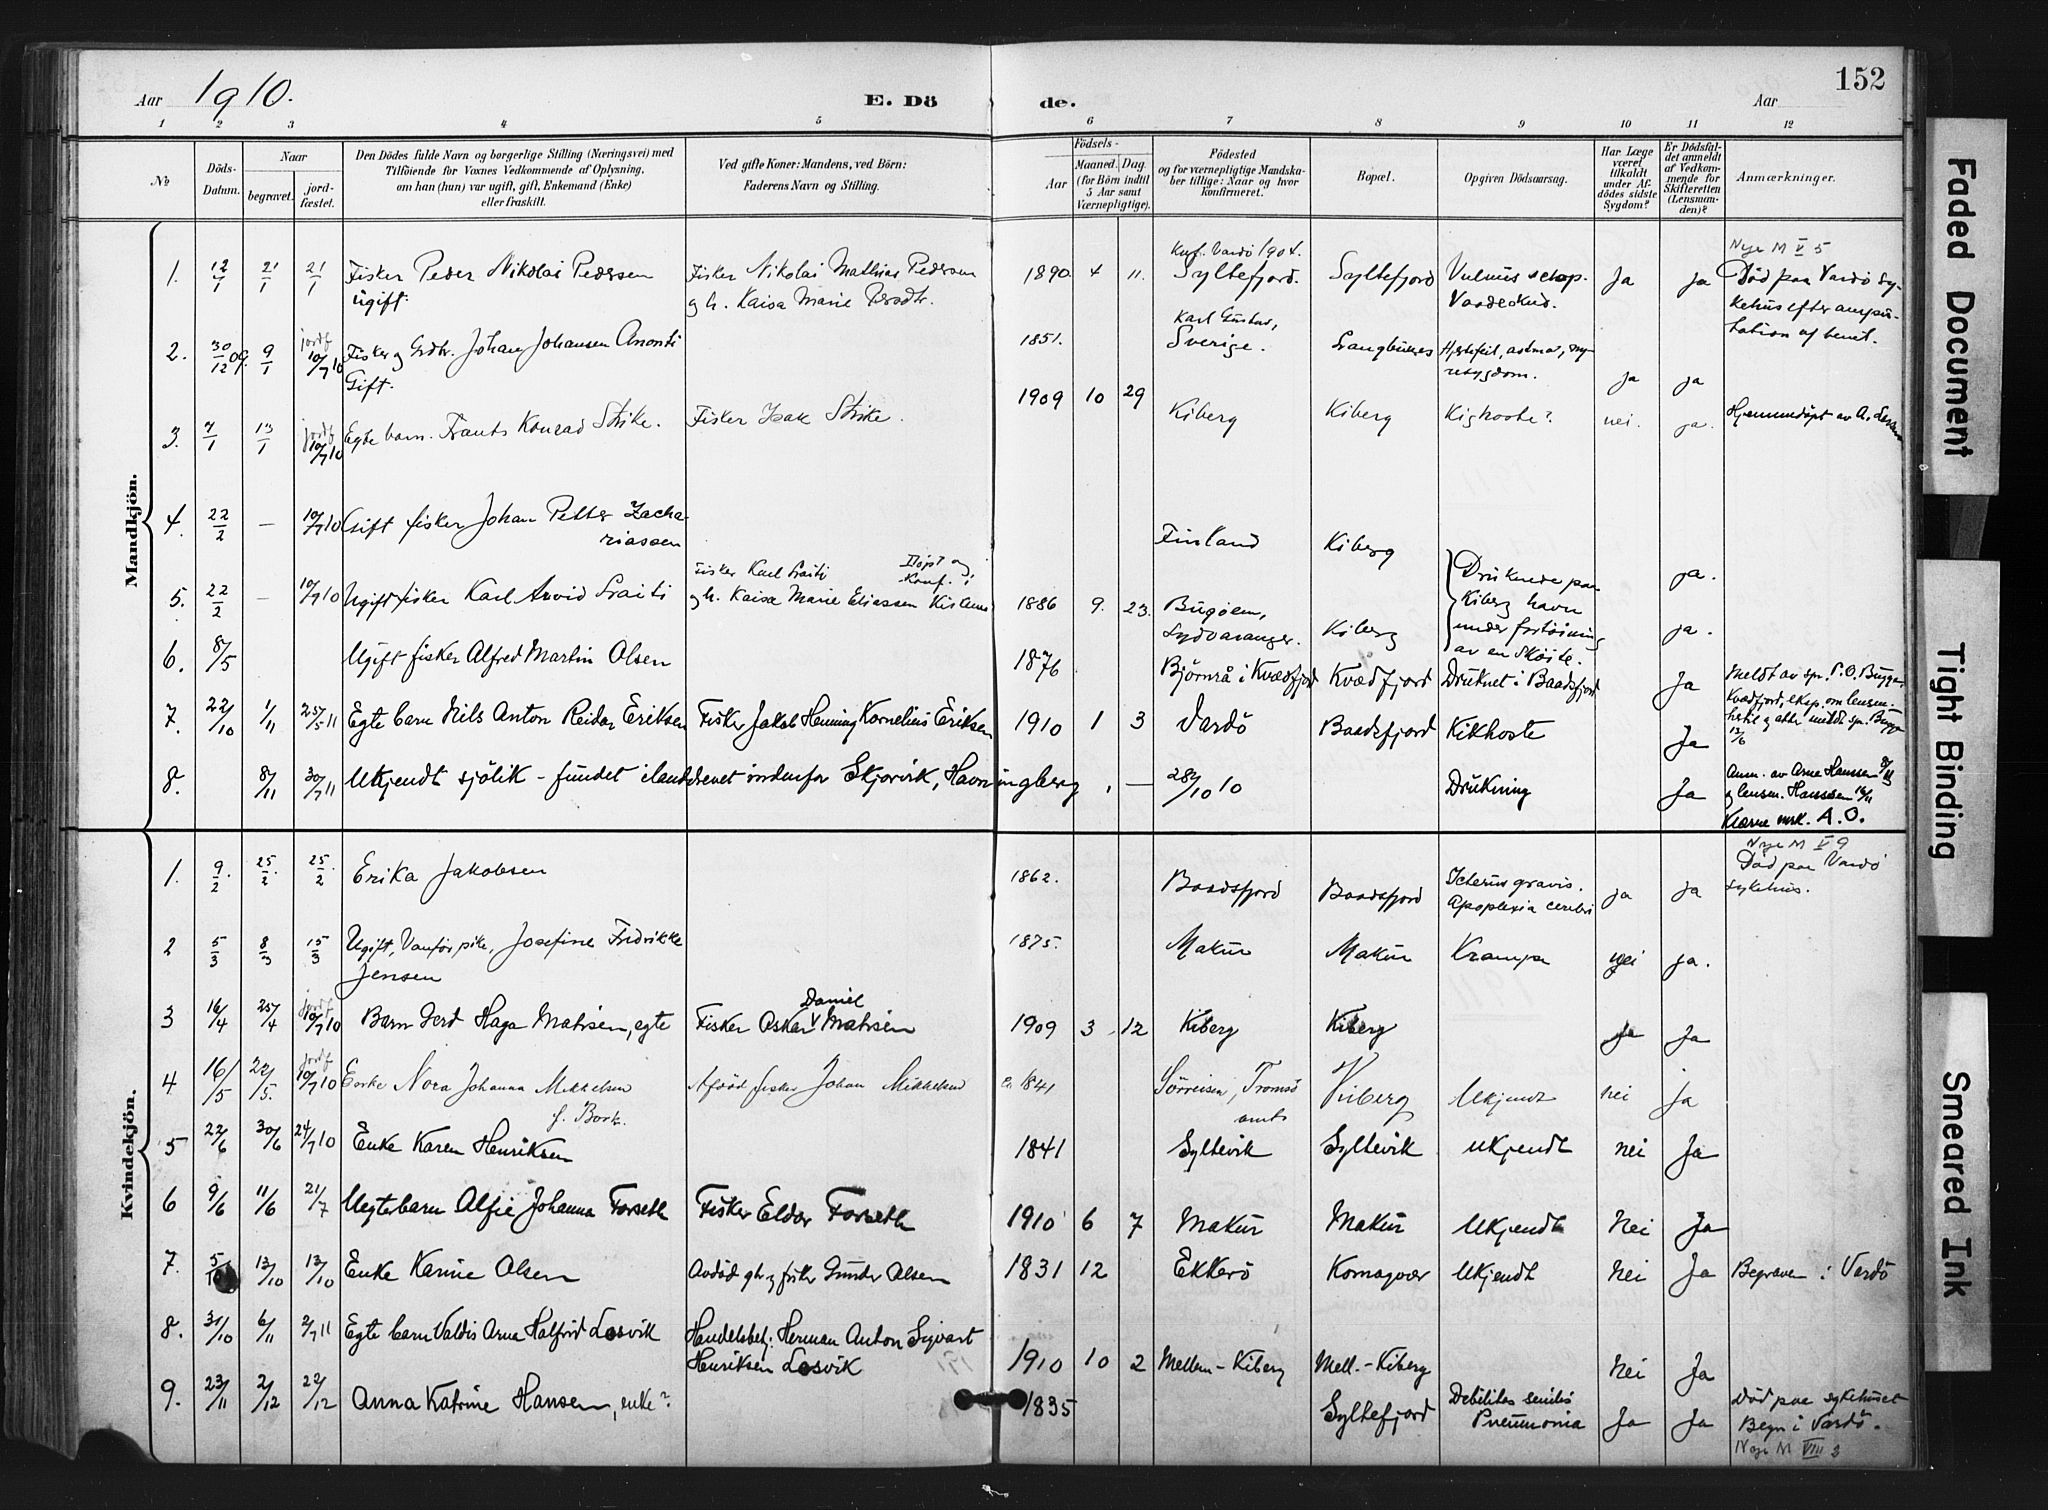 152
Aar 1910.
E. Döde.
Aar
1 2 3 4 5 6 7 8 9 10 11 12
No
Döds-Datum.
Naar
begravet.
jord-fæstet.
Den Dödes fulde Navn og borgerlige Stilling (Næringsvei) med
Tilföiende for Voxnes Vedkommende af Oplysning,
om han (hun) var ugift, gift, Enkemand (Enke)
eller fraskilt.
Ved gifte Koner: Mandens, ved Börn:
Faderens Navn og Stilling.
Födsels-
Aar
Maaned. Dag.
(for Börn indtil
5 Aar samt
Værnepligtige).
Födested
og for værnepligtige Mandska-
ber tillige: Naar og hvor
konfirmeret.
Bopæl.
Opgiven Dödsaarsag.
Har Læge
været
tilkaldt
under Af-
dödes sidste
Sygdom?
Er Dödsfal-
det anmeldt
af Vedkom-
mende for
Skifteretten
(Lensman-
den)?
Anmærkninger.
Mandkjön.
1. 12/1 21/1 21/1 Fisker Peder Nikolai Pedersen
ugift.
Fisker Nikolai Mathias Pedersen
og h. Kaisa Marie
1890 4 11. Konf. Vardö 1904.
Syltefjord. Syltefjord Vulnus sclop.
Vaadeskud. Ja Ja
Nye M V 5
Död paa Vardö sy-
kehus efter ampu-
tation af benet.
2. 30/12 09. 9/1 jordf 10/7 10 Fisker og Grdbr. Johan Johansen
Gift.
1851. Karl Gustav,
Sverige. Langbunes Hjertefeil, astma, ny-
resygdom. ja ja
3. 7/1 13/1 jordf 10/7 10 Egte barn. Frants Konrad Strike. Fisker Isak Strike.
1909 10 29 Kiberg Kiberg Kighoste? nei. ja. Hjemmedöpt av A.
4. 22/2 — 10/7 10 Gift fisker Johan Petter Zacha-
riassen
Finland Kiberg ja.
5. 22/2 — 10/7 10 Ugift fisker Karl Arvid Laiti
Fisker Karl Laiti
og h. Kaisa Marie Eliassen
Döpt og
Konf. i
1886 9. 23. Bugöen,
Sydvaranger. Kiberg
Druknede paa
Kiberg havn
under fortöining
av en sköite. ja.
6. 8/5 Ugift fisker Alfred Martin Olsen
1876 Björnrå i Kvædfjord Kvædfjord Druknet i Baadsfjord Ja
Meldt av sp. P.O. Bugge,
Kvædfjord, eksp. om lensm.
hertil og atter meldt sp. Bugge
12/6
7. 22/10 1/11 25/5 11 Egte barn Nils Anton Reidar Eriksen Fisker Jakob Henning Kornelius Eriksen
1910 1 3 Vardö Baadsfjord Kikhoste Ja
8. 8/11 30/7 11 Ukjendt sjölik – fundet ilanddrevet indenfor Skjarvik, Havningberg
— 28/10 10 Drukning Ja
Anm. av Arne Hanssen 8/11
og lensm. Hanssen 16/11
Klærne mrk. A.O.
Kvindekjön.
1. 9/2 25/2 25/2 Erika Jakobsen
1862. Baadsfjord Baadsfjord Icterus gravis.
Apoplexia cerebri ja ja
Nye M V 9
Död paa Vardö
sykehus.
2 5/3 8/3 15/3 Ugift, Vanför pike, Josefine Fredrikke
Jensen
1875. Makur Makur Krampe nei ja.
3 16/4 25/4 jordf 10/7 10 Barn Gerd Haga Mathisen, egte Fisker Oskar Daniel Mathisen
1909 3 12 Kiberg Kiberg Ja Ja
4 16/5 22/5. jordf 10/7 10 Enke Nora Johanna Mikkelsen
f. Bork.
Afdöd fisker Johan Mikkelsen
ca 1841 Sörreisen, Tromsö
amt Kiberg Ukjendt nei ja
5 22/6 30/6 24/7 10 Enke Karen Henriksen
1841 Syltevik Syltevik ukjendt nei Ja
6 9/6 11/6 21/7 Uegte barn Alfie Johanna Forseth Fisker Eldor Forseth
1910 6 7 Makur Makur Ukjendt Nei Ja
7. 5/10 13/10 13/10 Enke Karine Olsen Avdöd gbr og fisker Gunder Olsen
1831 12 Ekkerö Komagvær Ukjendt Nei Ja Begraven i Vardö
8. 31/10 6/11 2/7 11 Egte barn Valdis Arna Halfrid Løsvik
Handelsbetj. Herman Anton Sigvart
Henriksen Løsvik
1910 10 2 Mellem-Kiberg Mell.-Kiberg Nei Ja
9. 23/11 2/12 22/12 Anna Katrine Hansen, enke?
1835 Syltefjord Debilitas senilis
Pneumonia Ja Ja
Död paa sykehuset
Begr. i Vardö.
Nye M VIII 3
Faded Document
Tight Binding
Smeared Ink